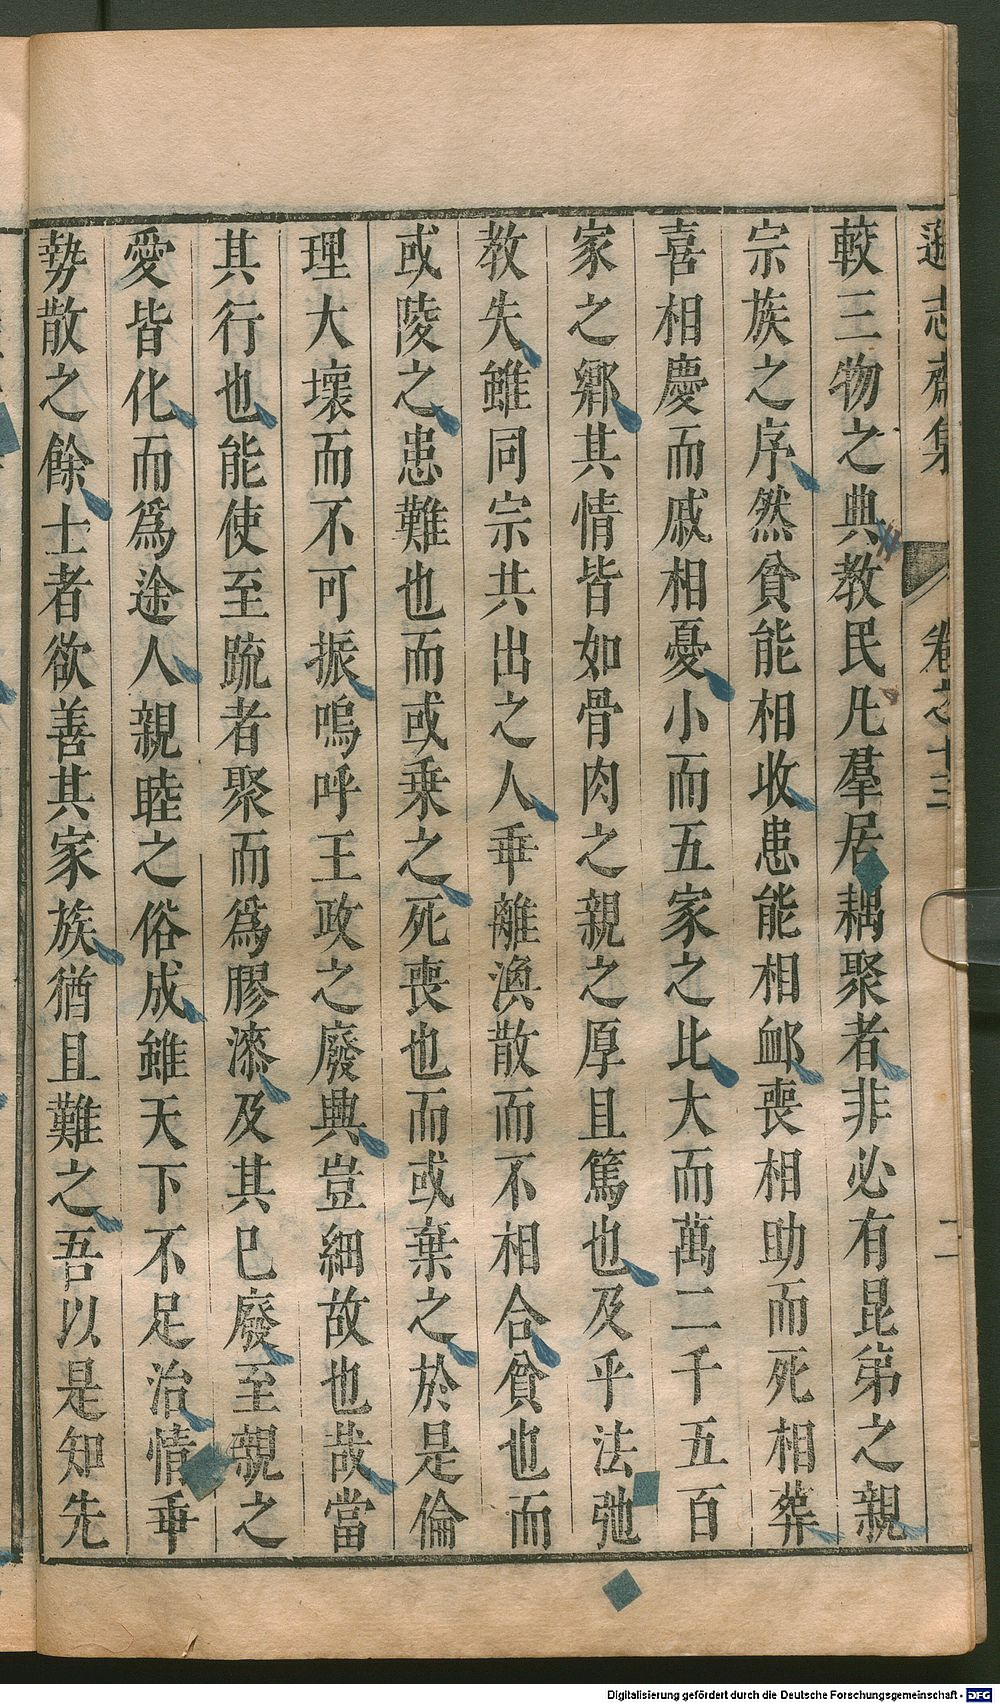 遜志齋集 卷之十三 二
較三物之典教民凡羣居耦聚者非必有昆弟之親
宗族之序然貧能相收患能相䘏喪相助而死相葬
喜相慶而戚相憂小而五家之比大而萬二千五百
家之鄉其情皆如骨肉之親之厚且篤也及乎法弛
教失雖同宗共出之人乖離渙散而不相合貧也而
或陵之患難也而或乗之死喪也而或棄之於是倫
理大壞而不可振嗚呼王政之廢興豈細故也哉當
其行也能使至䟽者聚而爲膠漆及其已廢至親之
愛皆化而爲途人親睦之俗成雖天下不足治情乖
勢散之餘士者欲善其家族猶且難之吾以是知先
Digitalisierung gefördert durch die Deutsche Forschungsgemeinschaft - DFG